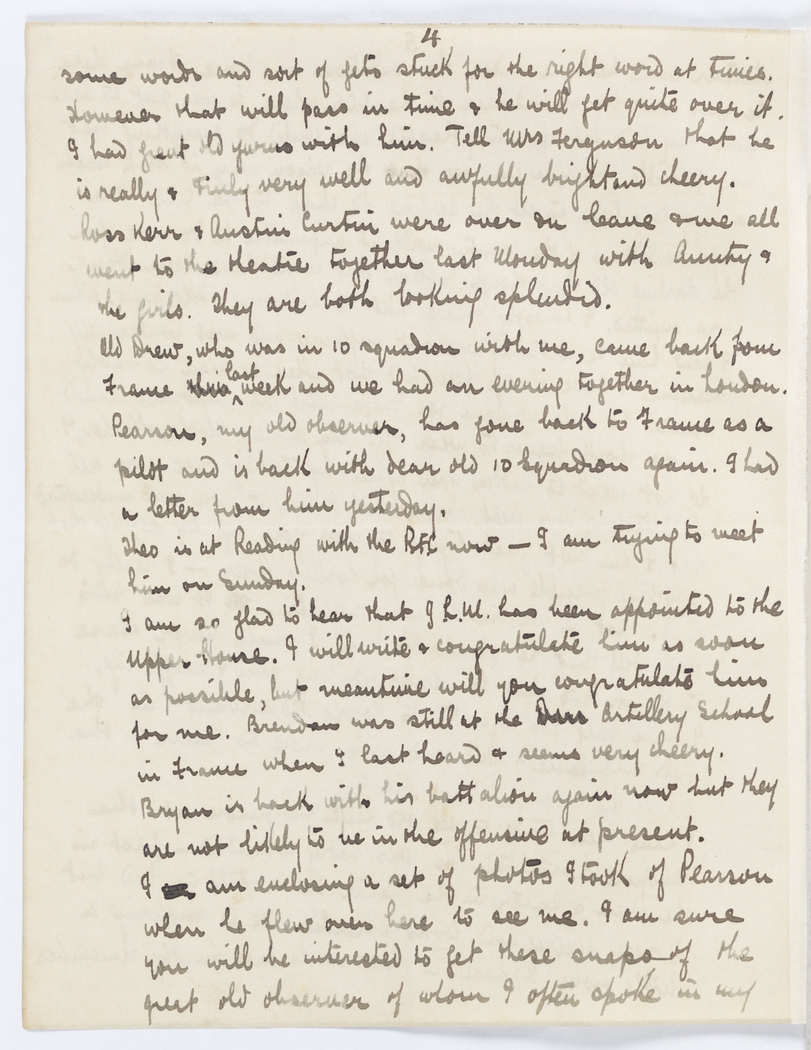 4
some words and sort of gets stuck for the right word at times.
However that will pass in time & he will get quite over it.
I had great old yarns with him. Tell Mrs Ferguson that he
is really & truly very well and awfully bright and cheery.
Ross Kerr & Austin Curtin were over on leave & we all
went to the theatre together last Monday with Aunty &
the girls. They are both looking splendid.
Old Drew, who was in 10 squadron with me, came back from
France this last week and we had an evening together in London.
Pearson, my old observer, has gone back to France as a
pilot and is back with dear old 10 Squadron again. I had
a letter from him yesterday.
Theo is at Reading with the RFC now — I am trying to meet
him on Sunday.
I am so glad to hear that J.L.W. has been appointed to the
Upper House. I will write & congratulate him as soon
as possible, but meantime will you congratulate him
for me. Brendan was still at the Artillery School
in France when I last heard & seems very cheery.
Bryan is back with his battalion again now but they
are not likely to be in the offensive at present.
I am enclosing a set of photos I took of Pearson
when he flew over here to see me. I am sure
you will be interested to get these snaps of the
great old observer of whom I often spoke in my